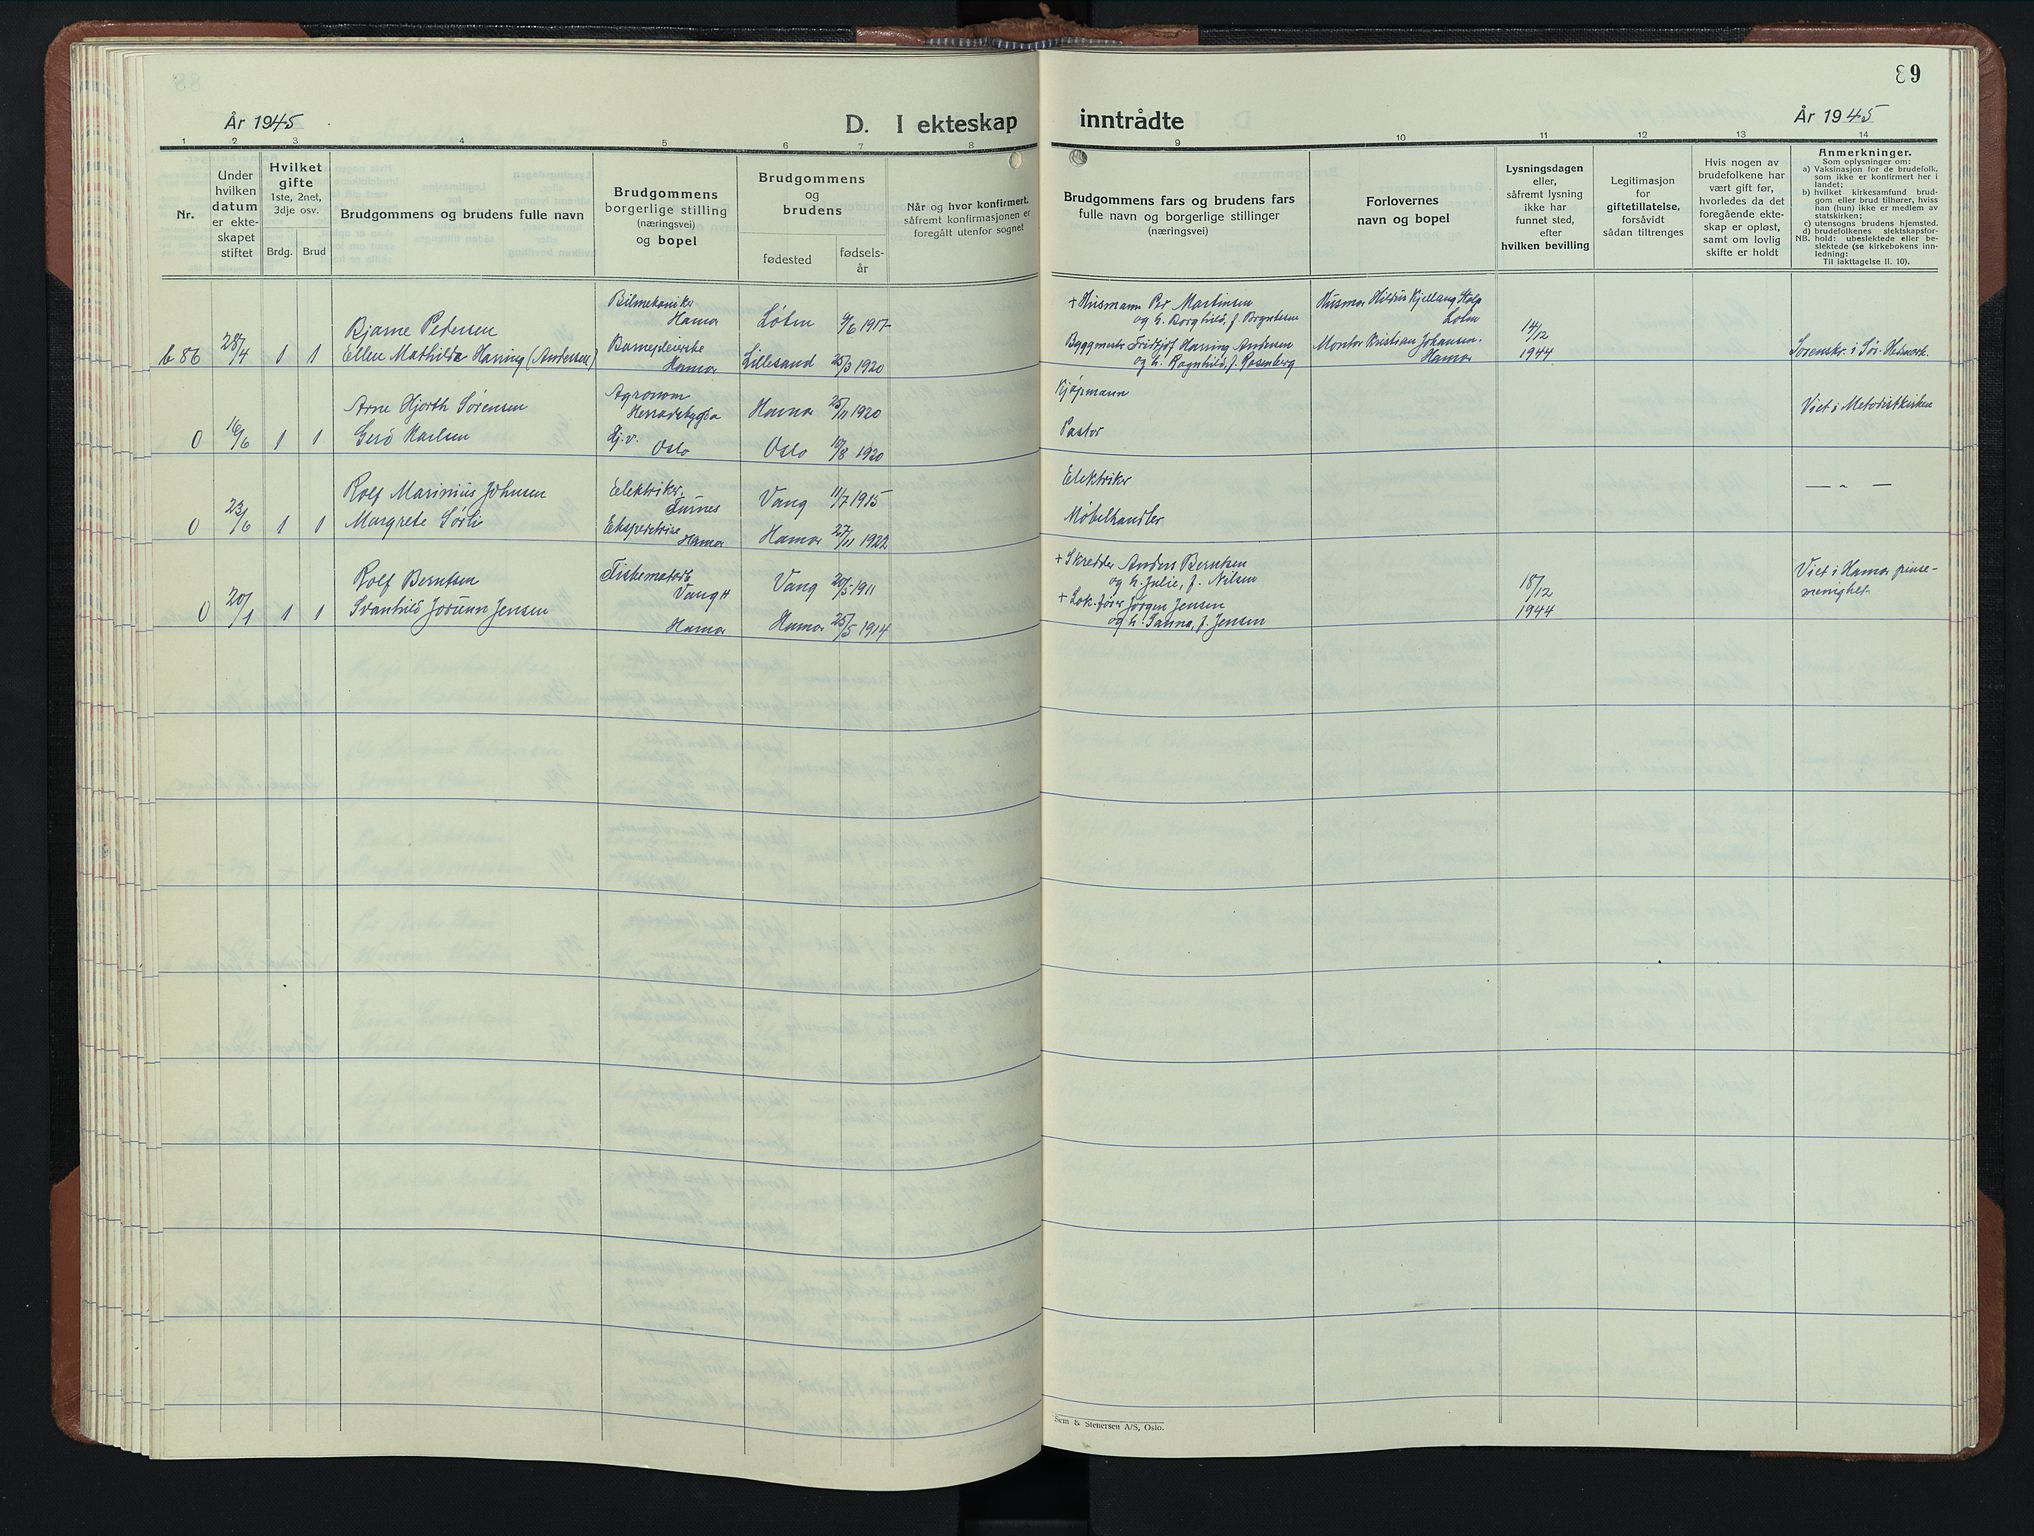 89
År 1945
D. I ekteskap
inntrådte
År 1945
1 2 3 4 5 6 7 8
9 10 11 12 13 14
Nr.
Under
hvilken
datum
er ekte-
skapet
stiftet
Hvilket
gifte
1ste, 2net,
3dje osv.
Brdg. Brud
Brudgommens og brudens fulle navn
Brudgommens
borgerlige stilling
(næringsvei)
og bopel
Brudgommens
og
brudens
fødested
fødsels-
år
Når og hvor konfirmert,
såfremt konfirmasjonen er
foregått utenfor sognet
Brudgommens fars og brudens fars
fulle navn og borgerlige stillinger
(næringsvei)
Forlovernes
navn og bopel
Lysningsdagen
eller,
såfremt lysning
ikke har
funnet sted,
efter
hvilken bevilling
Legitimasjon
for
giftetillatelse,
forsåvidt
sådan tiltrenges
Hvis nogen av
brudefolkene har
vært gift før,
hvorledes da det
foregående ekte-
skap er opløst,
samt om lovlig
skifte er holdt
Anmerkninger.
Som oplysninger om:
a) Vaksinasjon for de brudefolk,
som ikke er konfirmert her i
landet;
b) hvilket kirkesamfund brud-
gom eller brud tilhører, hviss
han (hun) ikke er medlem av
statskirken;
c) utensogns brudens hjemsted.
d) brudefolkenes slektskapsfor-
NB. hold: ubeslektede eller be-
slektede (se kirkebokens inn-
ledning:
Til iakttagelse II. 10).
b 86 28/4 1 1
Bjarne Pedersen
Ellen Mathilde Harring (Andersen)
Bilmekaniker
Hamar
Barnepleierske
Hamar
Løten 9/6 1917
Lillesand 25/3 1920
+ Husmann Per Martinsen
og h. Borghild, f. Bryntesen
Byggmester Fridtjof Harring Andersen
og h. Ragnhild, f. Rosenberg
Husmor Hildur Kjellaug
Løten
Montør Kristian Johansen.
Hamar
14/12
1944
Sorenskr. i Sør-Hedmark.
0 16/6 1 1
Arne Hjorth Sørensen
Gerd Karlsen
Agronom
Herradsbygda
Hj.v.
Oslo
Hamar 25/11 1920
Oslo 10/8 1920
Kjøpmann
Pastor
Viet i Metodistkirken
0 23/6 1 1
Rolf Marinius Johnsen
Margrete Sørli
Elektriker,
Furnes
Ekspeditrise
Hamar
Vang 11/7 1915
Hamar 27/11 1922
Elektriker
Møbelhandler
— " —
0 20/1 1 1
Rolf Berntsen
Svanhild Jorunn Jensen
Fiskematarb.
Vang H
Hamar
Vang 20/5 1911
Hamar 25/5 1914
+ Skredder Anders Berntsen
og h. Julie, f. Nilsen
+ Lok.fører Jørgen Jensen
og h. Sanna, f. Jensen
18/12
1944
Viet i Hamar pinse-
menighet
Sem & Stenersen A/S, Oslo.